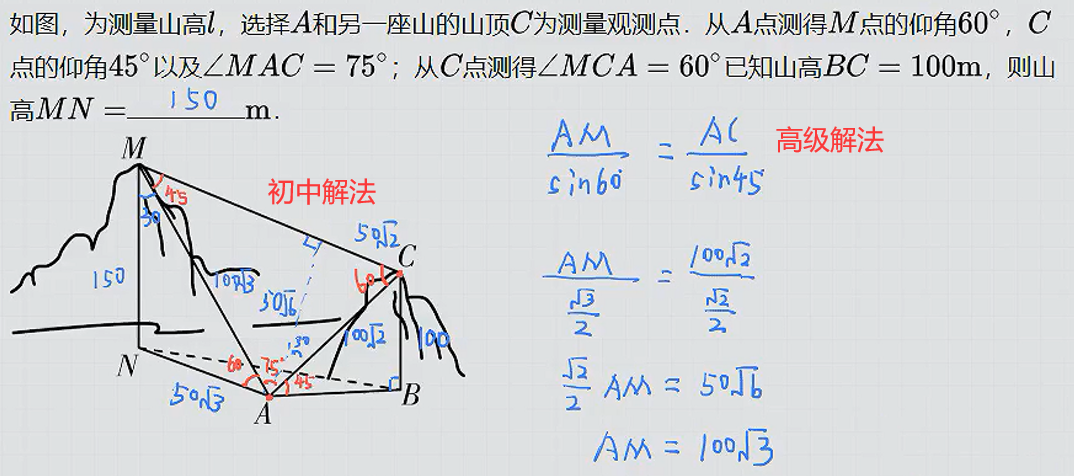 如图，为测量山高l，选择A和另一座山的山顶C为测量观测点．从A点测得M点的仰角60°，C
点的仰角45°以及∠MAC = 75°；从C点测得∠MCA = 60°已知山高BC = 100m，则山
高MN = 150 m．
M
45
30
初中解法
50√2
C
60
150
100√3
50√6
30
100√2
100
N
60
75°
45
B
50√3
A
AM/sin60 = AC/sin45
高级解法
AM/(√3/2) = 100√2/(√2/2)
√2/2 AM = 50√6
AM = 100√3